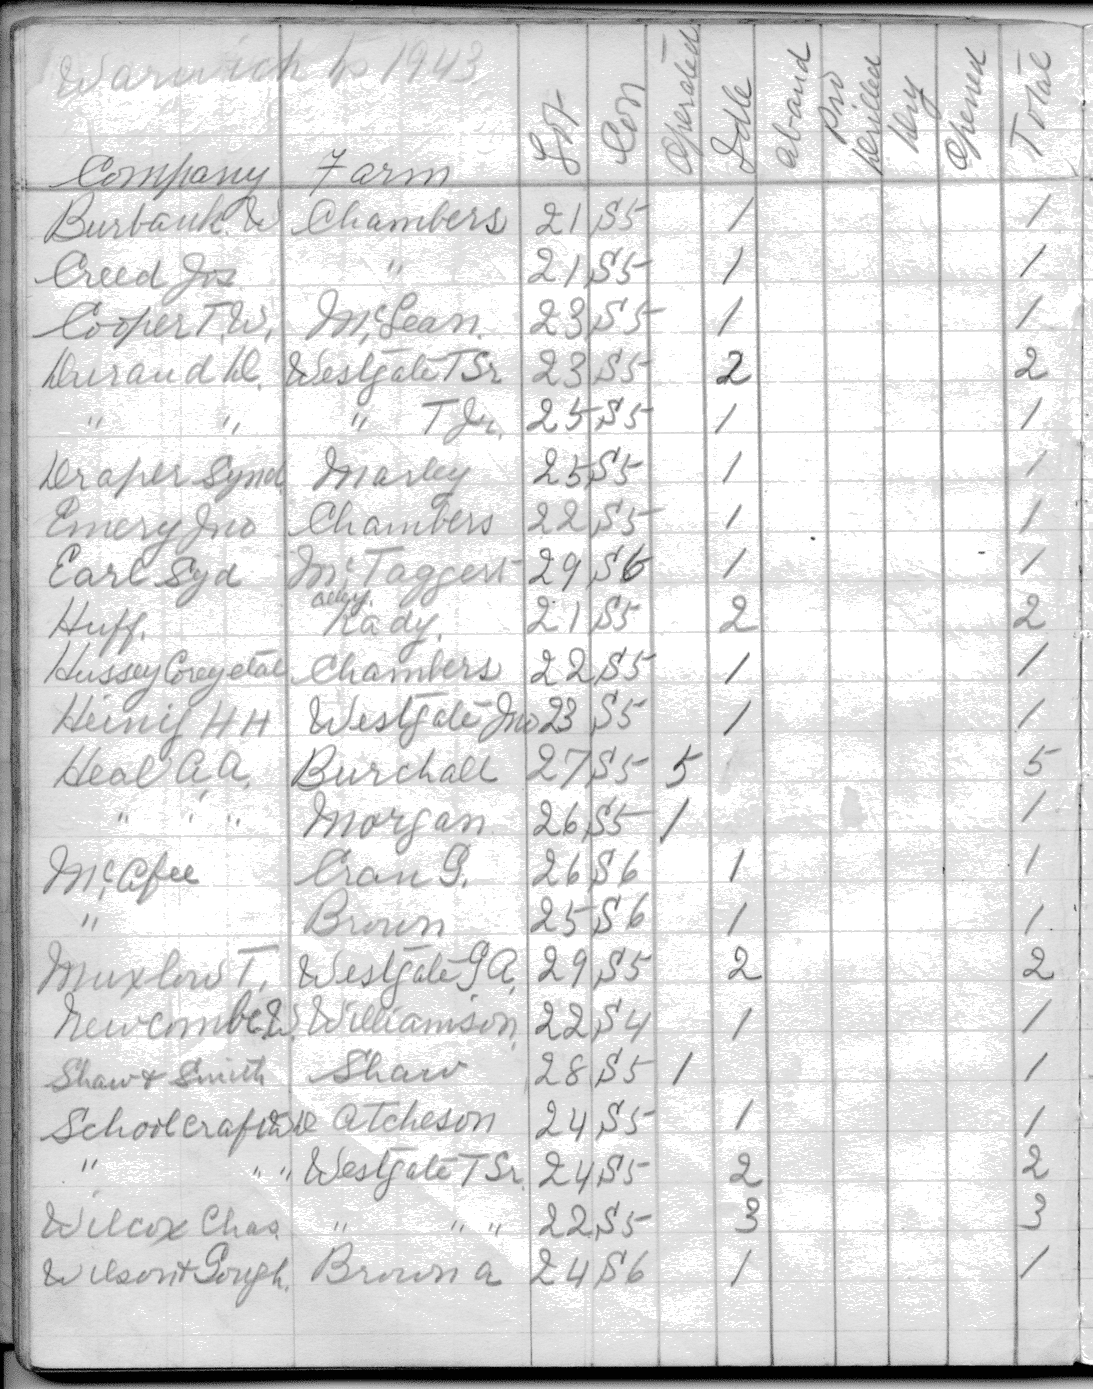 Warwich to 1943
Company Farm Lot Con Operated Idle aband Pro Drilled Dry Opened Total
Burbank. W Chambers 21 S5 1 1
Creed Jos " 21 S5 1 1
Cooper T.W. McLean. 23 S5 1 1
Durand D. Westgate T Sr 23 S5 2 2
" " " T Jr. 25 S5 1 1
Draper Synd. Marley 25 S5 1 1
Emery Jno Chambers 22 S5 1 1
Earl Syd McTaggert 29 S6 1 1
Huff. Kady. 21 S5 2 2
Hussey Corey etal Chambers 22 S5 1 1
Heinig H H Westgate Jno 23 S5 1 1
Heal A.A. Burchall 27 S5 5 5
" " " Morgan 26 S5 1 1
McAfee Cran G. 26 S6 1 1
" Brown 25 S6 1 1
Muxlow T. Westgate G A. 29 S5 2 2
Newcombe W. Williamson 22 S4 1 1
Shaw & Smith Shaw 28 S5 1 1
Schoolcraft W D Atcheson 24 S5 1 1
" " " Westgate T Sr. 24 S5 2 2
Wilcox Chas " " " 22 S5 3 3
Wilson & Gough. Brown A 24 S6 1 1